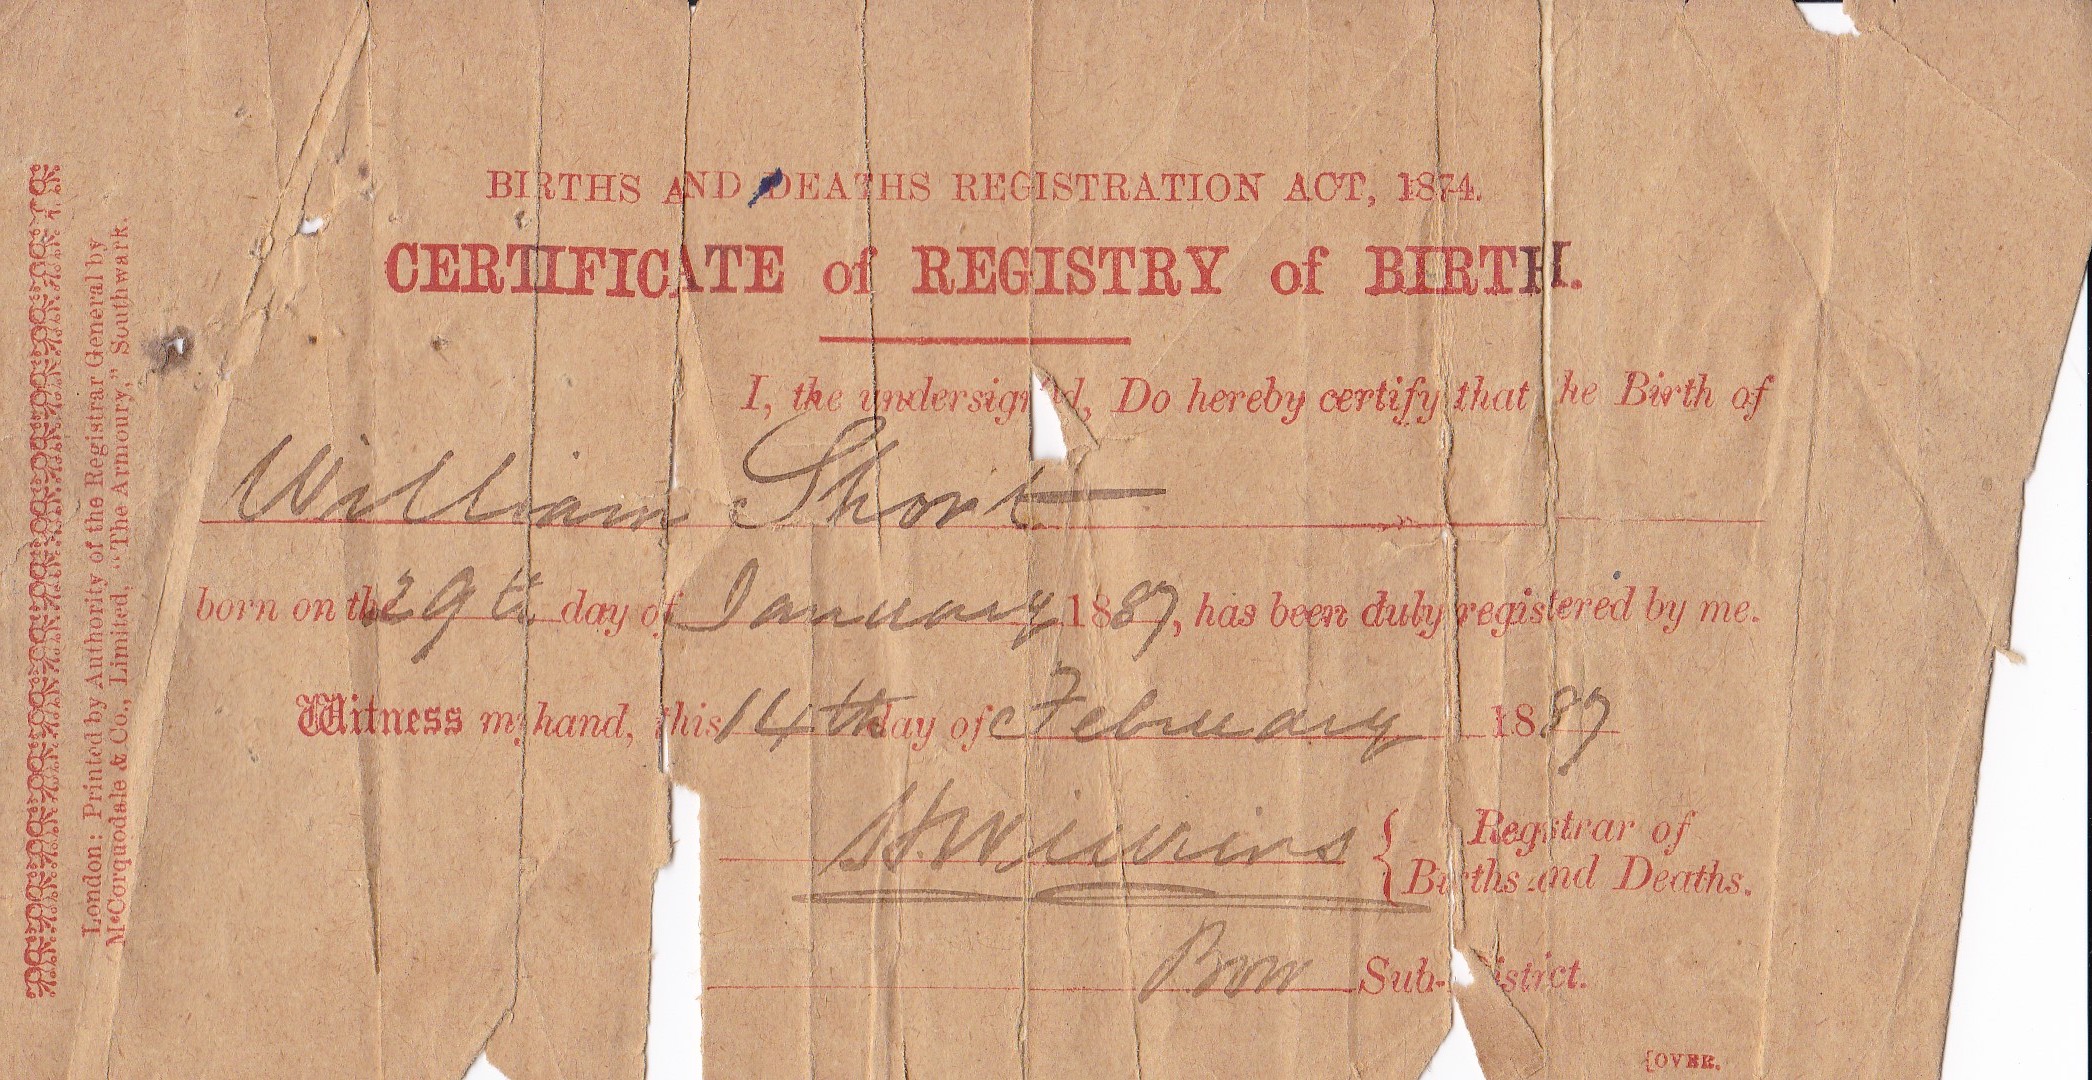 BIRTHS AND DEATHS REGISTRATION ACT, 1874.
CERTIFICATE of REGISTRY of BIRTH.
I, the undersign'd, Do hereby certify that he Birth of
William Short
born on the 29th day of January 1887, has been duly registered by me.
Witness my hand, this 14th day of February 1887
Registrar of
Births and Deaths.
Bow Sub-istrict.
{OVER.
London: Printed by Authority of the Registrar General by
McCorquodale & Co., Limited, "The Armoury," Southwark.